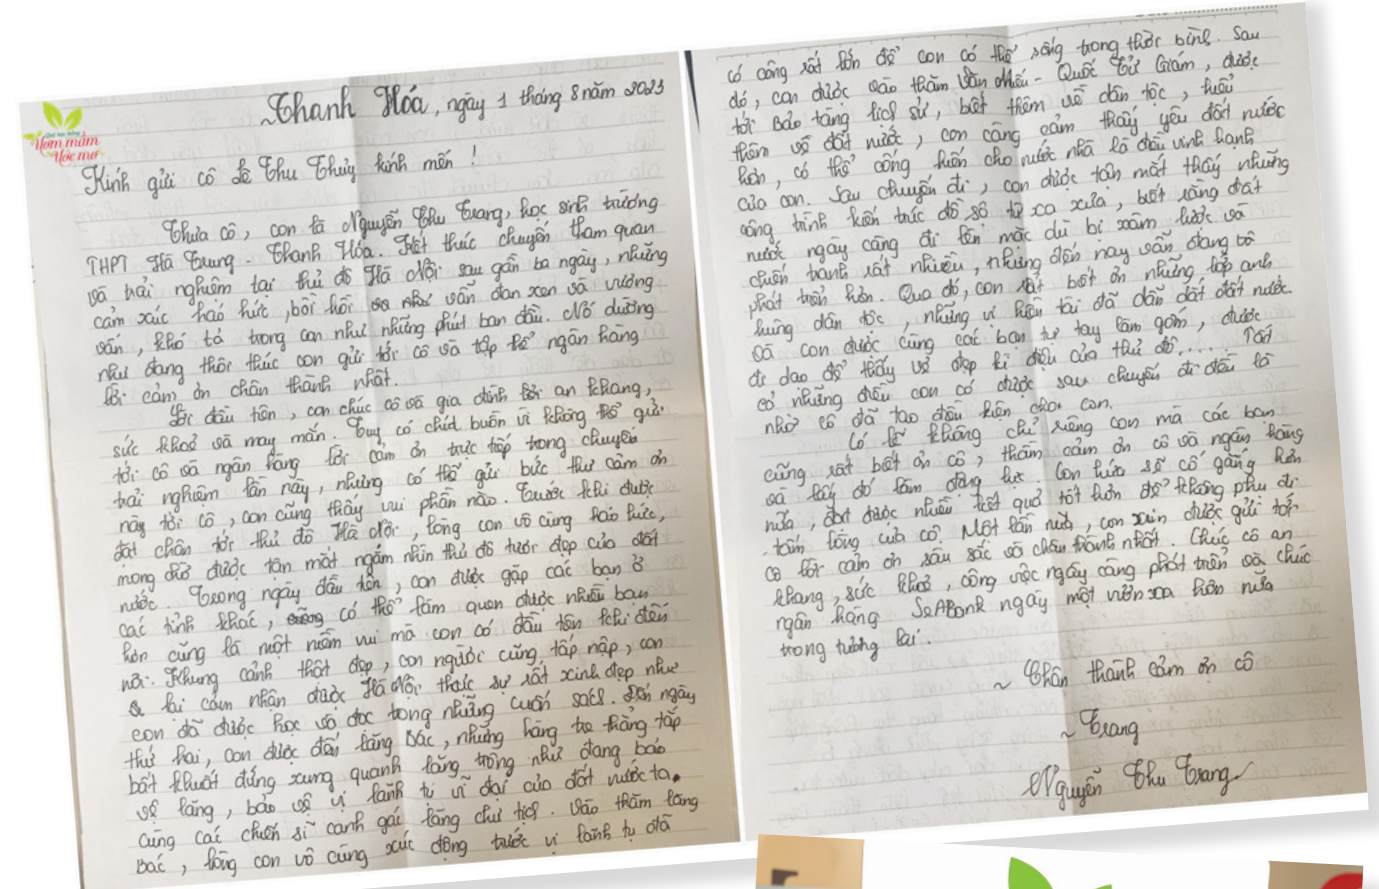 Quỹ học bổng
Ươm mầm
Ước mơ
Thanh Hóa, ngày 1 tháng 8 năm 2023
Kính gửi cô Lê Thu Thủy kính mến !
Thưa cô, con là Nguyễn Thu Trang, học sinh trường
THPT Hà Trung - Thanh Hóa. Kết thúc chuyến tham quan
và trải nghiệm tại thủ đô Hà Nội sau gần ba ngày, những
cảm xúc háo hức, bồi hồi như vẫn đan xen và vương
vấn, khó tả trong con như những phút ban đầu. Nó dường
như đang thôi thúc con gửi tới cô và tập thể ngân hàng
lời cảm ơn chân thành nhất.
Lời đầu tiên, con chúc cô và gia đình lời an khang,
sức khoẻ và may mắn. Tuy có chút buồn vì không thể gửi
tới cô và ngân hàng lời cảm ơn trực tiếp trong chuyến
trải nghiệm lần này, nhưng có thể gửi bức thư cảm ơn
này tới cô, con cũng thấy vui phần nào. Trước khi được
đặt chân tới thủ đô Hà Nội, lòng con vô cùng háo hức,
mong chờ được tận mắt ngắm nhìn thủ đô tươi đẹp của đất
nước. Trong ngày đầu tiên, con được gặp các bạn ở
các tỉnh khác, có thể làm quen được nhiều bạn
hơn cũng là một niềm vui mà con có đầu tiên khi đến
nơi. Khung cảnh thật đẹp, con người cũng tấp nập, con
lại cảm nhận được Hà Nội thực sự rất xinh đẹp như
con đã được học và đọc trong những cuốn sách. Đến ngày
thứ hai, con được đến lăng Bác, những hàng tre thẳng tắp
bất khuất đứng xung quanh lăng trông như đang bảo
vệ lăng, bảo vệ vị lãnh tụ vĩ đại của đất nước ta.
Cùng các chiến sĩ canh gác lăng chủ tịch. Vào thăm lăng
Bác, lòng con vô cùng xúc động trước vị lãnh tụ đã
có công rất lớn để con có thể sống trong thời bình. Sau
đó, con được vào thăm Văn Miếu - Quốc Tử Giám, được
tới Bảo tàng lịch sử, biết thêm về dân tộc, hiểu
thêm về đất nước, con càng cảm thấy yêu đất nước
hơn, có thể cống hiến cho nước nhà là điều vinh hạnh
của con. Sau chuyến đi, con được tận mắt thấy những
công trình kiến trúc đồ sộ từ xa xưa, biết rằng đất
nước ngày càng đi lên mặc dù bị xâm lược và
chiến tranh rất nhiều, nhưng đến nay vẫn đang
phát triển hơn. Qua đó, con rất biết ơn những anh
hùng dân tộc, những vị hiền tài đã dẫn dắt đất nước.
Và con được cùng các bạn tự tay làm gốm, được
đi dạo để thấy vẻ đẹp kì diệu của thủ đô,.... Tất
cả những điều con có được sau chuyến đi đều là
nhờ cô đã tạo điều kiện cho con.
Có lẽ không chỉ riêng con mà các bạn
cũng rất biết ơn cô, thầm cảm ơn cô và ngân hàng
và lấy đó làm động lực. Con hứa sẽ cố gắng hơn
nữa, đạt được nhiều kết quả tốt hơn để không phụ đi
tấm lòng của cô. Một lần nữa, con xin được gửi tới
cô lời cảm ơn sâu sắc và chân thành nhất. Chúc cô an
khang, sức khoẻ, công việc ngày càng phát triển và chúc
ngân hàng SeABank ngày một vươn xa hơn nữa
trong tương lai.
~ Chân thành cảm ơn cô
~ Trang
Nguyễn Thu Trang